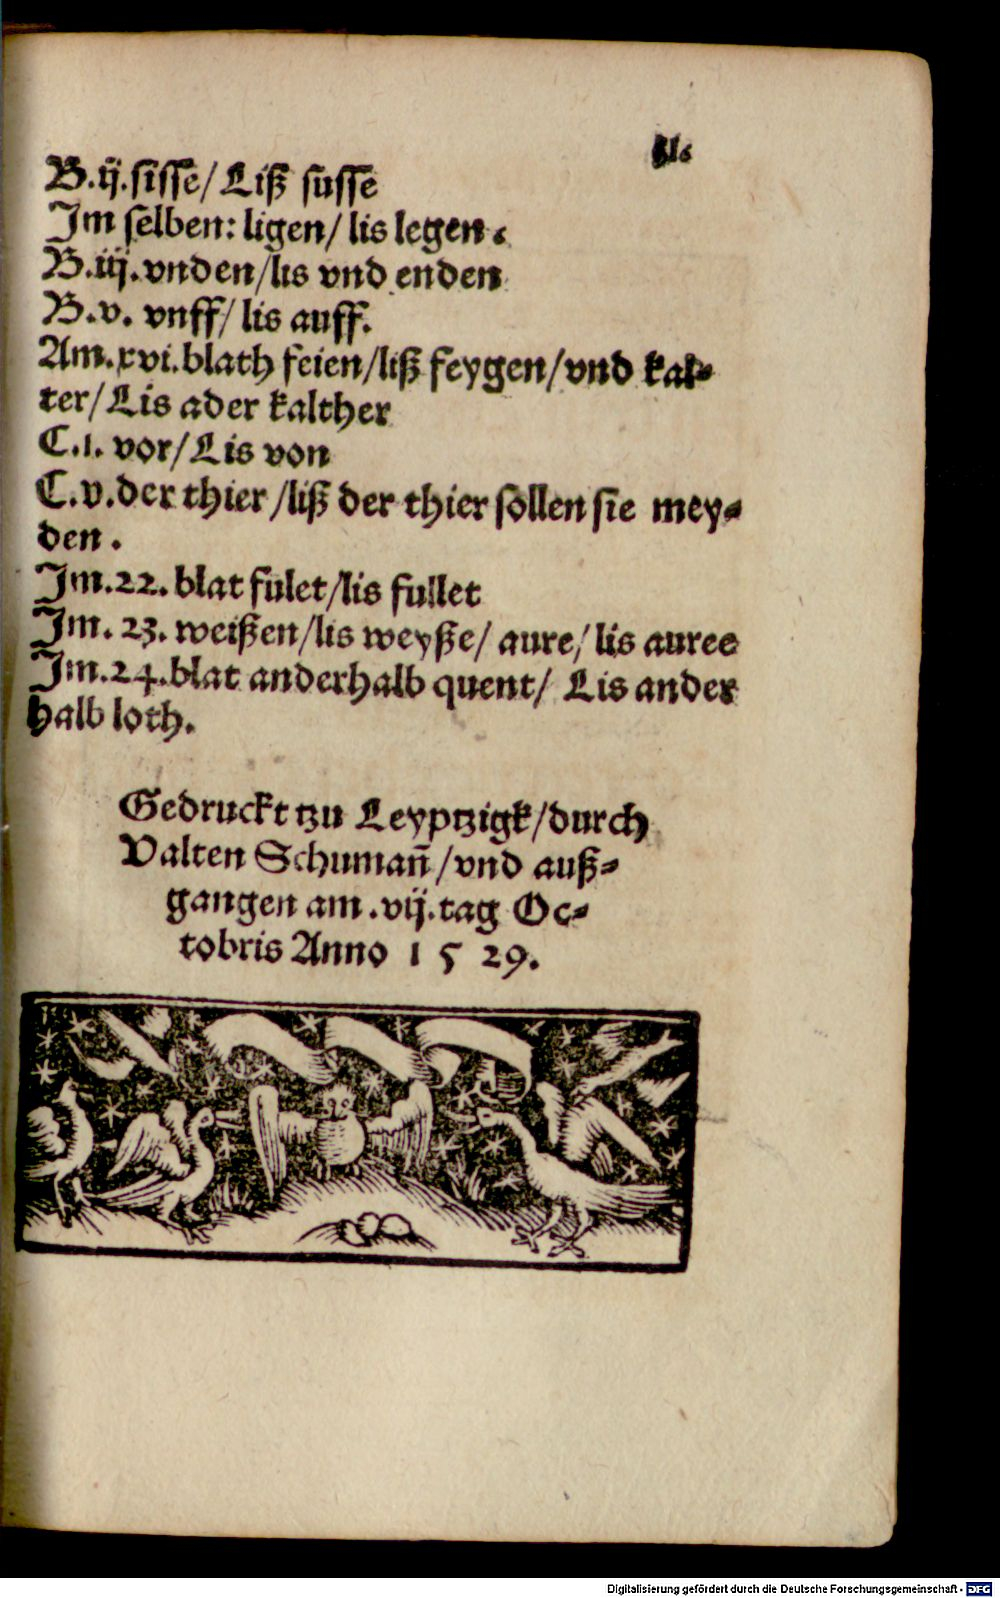 B.ij.sisse/Liß susse
Im selben: ligen/ lis legen.
B.iij.vnden/lis vnd enden
B.v. vnff/ lis auff.
Am.xvi.blath feien/liß feygen/vnd kal-
ter/Lis ader kalther
C.i. vor/Lis von
C.v.der thier/liß der thier sollen sie mey-
den.
Im.22. blat fulet/lis fullet
Im. 23. weißen/lis weyße/ aure/ lis auree
Im.24.blat anderhalb quent/ Lis ander
halb loth.
Gedruckt tzu Leyptzigk/durch
Valten Schuman̄/vnd auß-
gangen am.vij.tag Oc-
tobris Anno 1529.
Digitalisierung gefördert durch die Deutsche Forschungsgemeinschaft - DFG